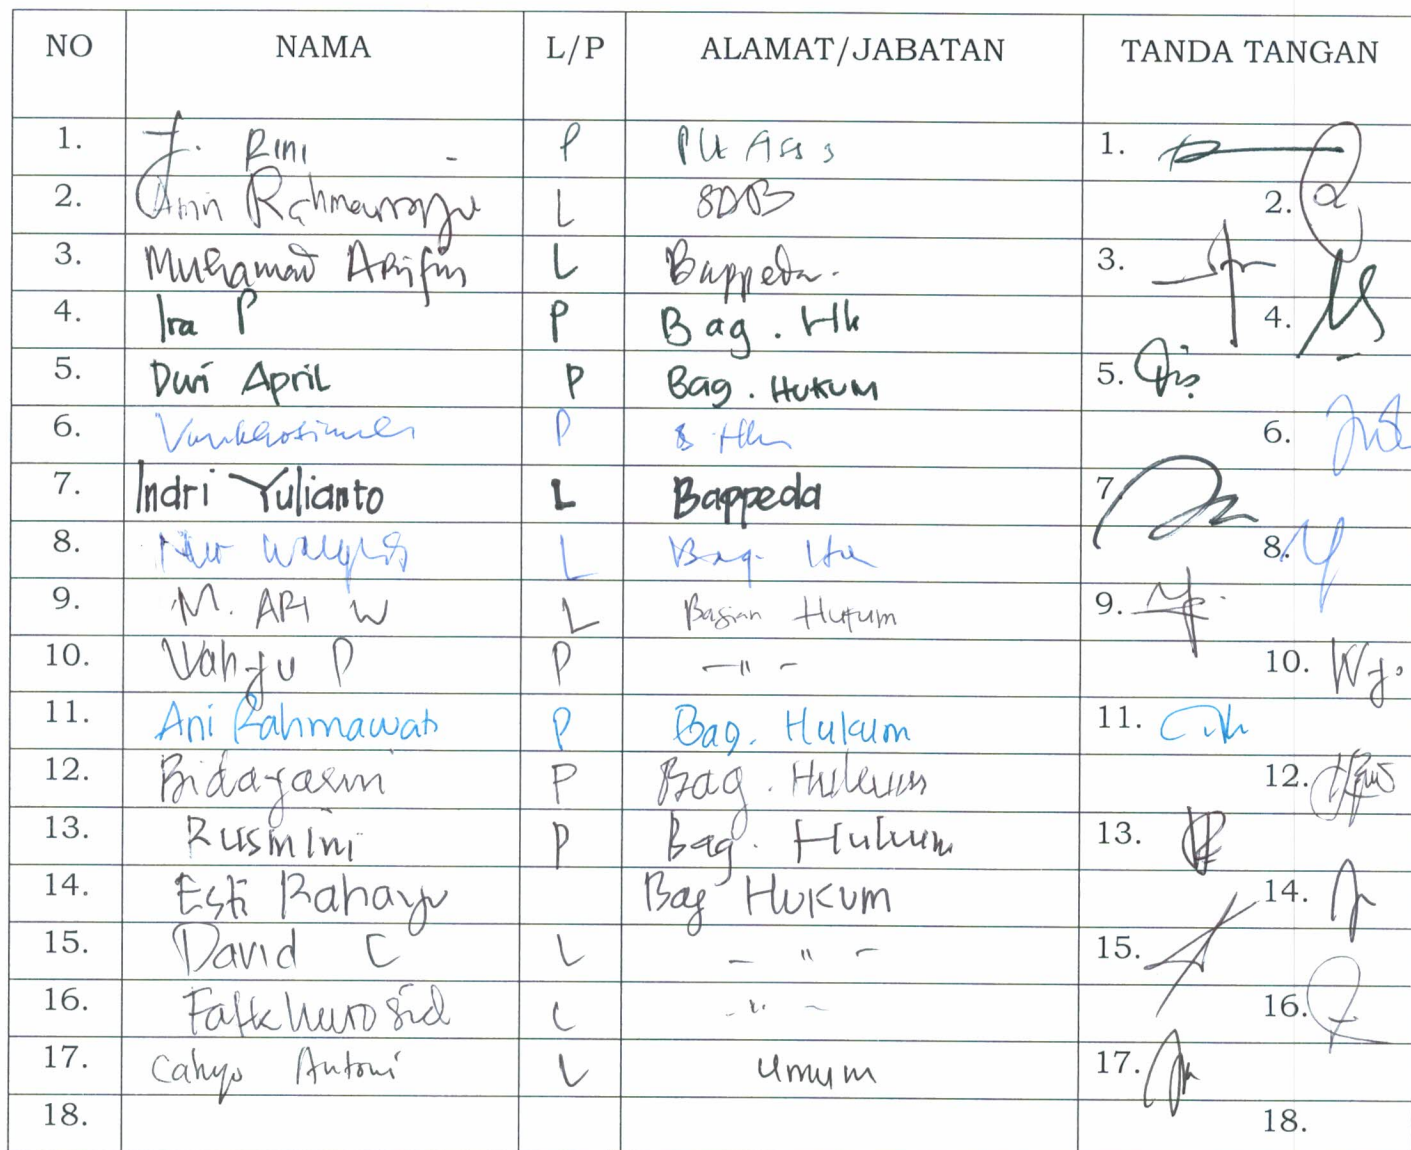 NO NAMA L/P ALAMAT/JABATAN TANDA TANGAN
1. Rini P Plt Ass 3 1.
2. L 2.
3. Muhamad Arifin L Bappeda. 3.
4. Ira P P Bag. Hk 4.
5. Dwi April P Bag. Hukum 5.
6. P 6.
7. Indri Yulianto L Bappeda 7.
8. L Bag. 8.
9. M. ARI W L Bagian Hukum 9.
10. Wahyu P P - " - 10.
11. Ani Rahmawati P Bag. Hukum 11.
12. P Bag. Hukum 12.
13. Rusmini P Bag. Hukum 13.
14. Esti Rahayu Bag Hukum 14.
15. David C L - " - 15.
16. L - " - 16.
17. Cahyo Antoni L Umum 17.
18. 18.